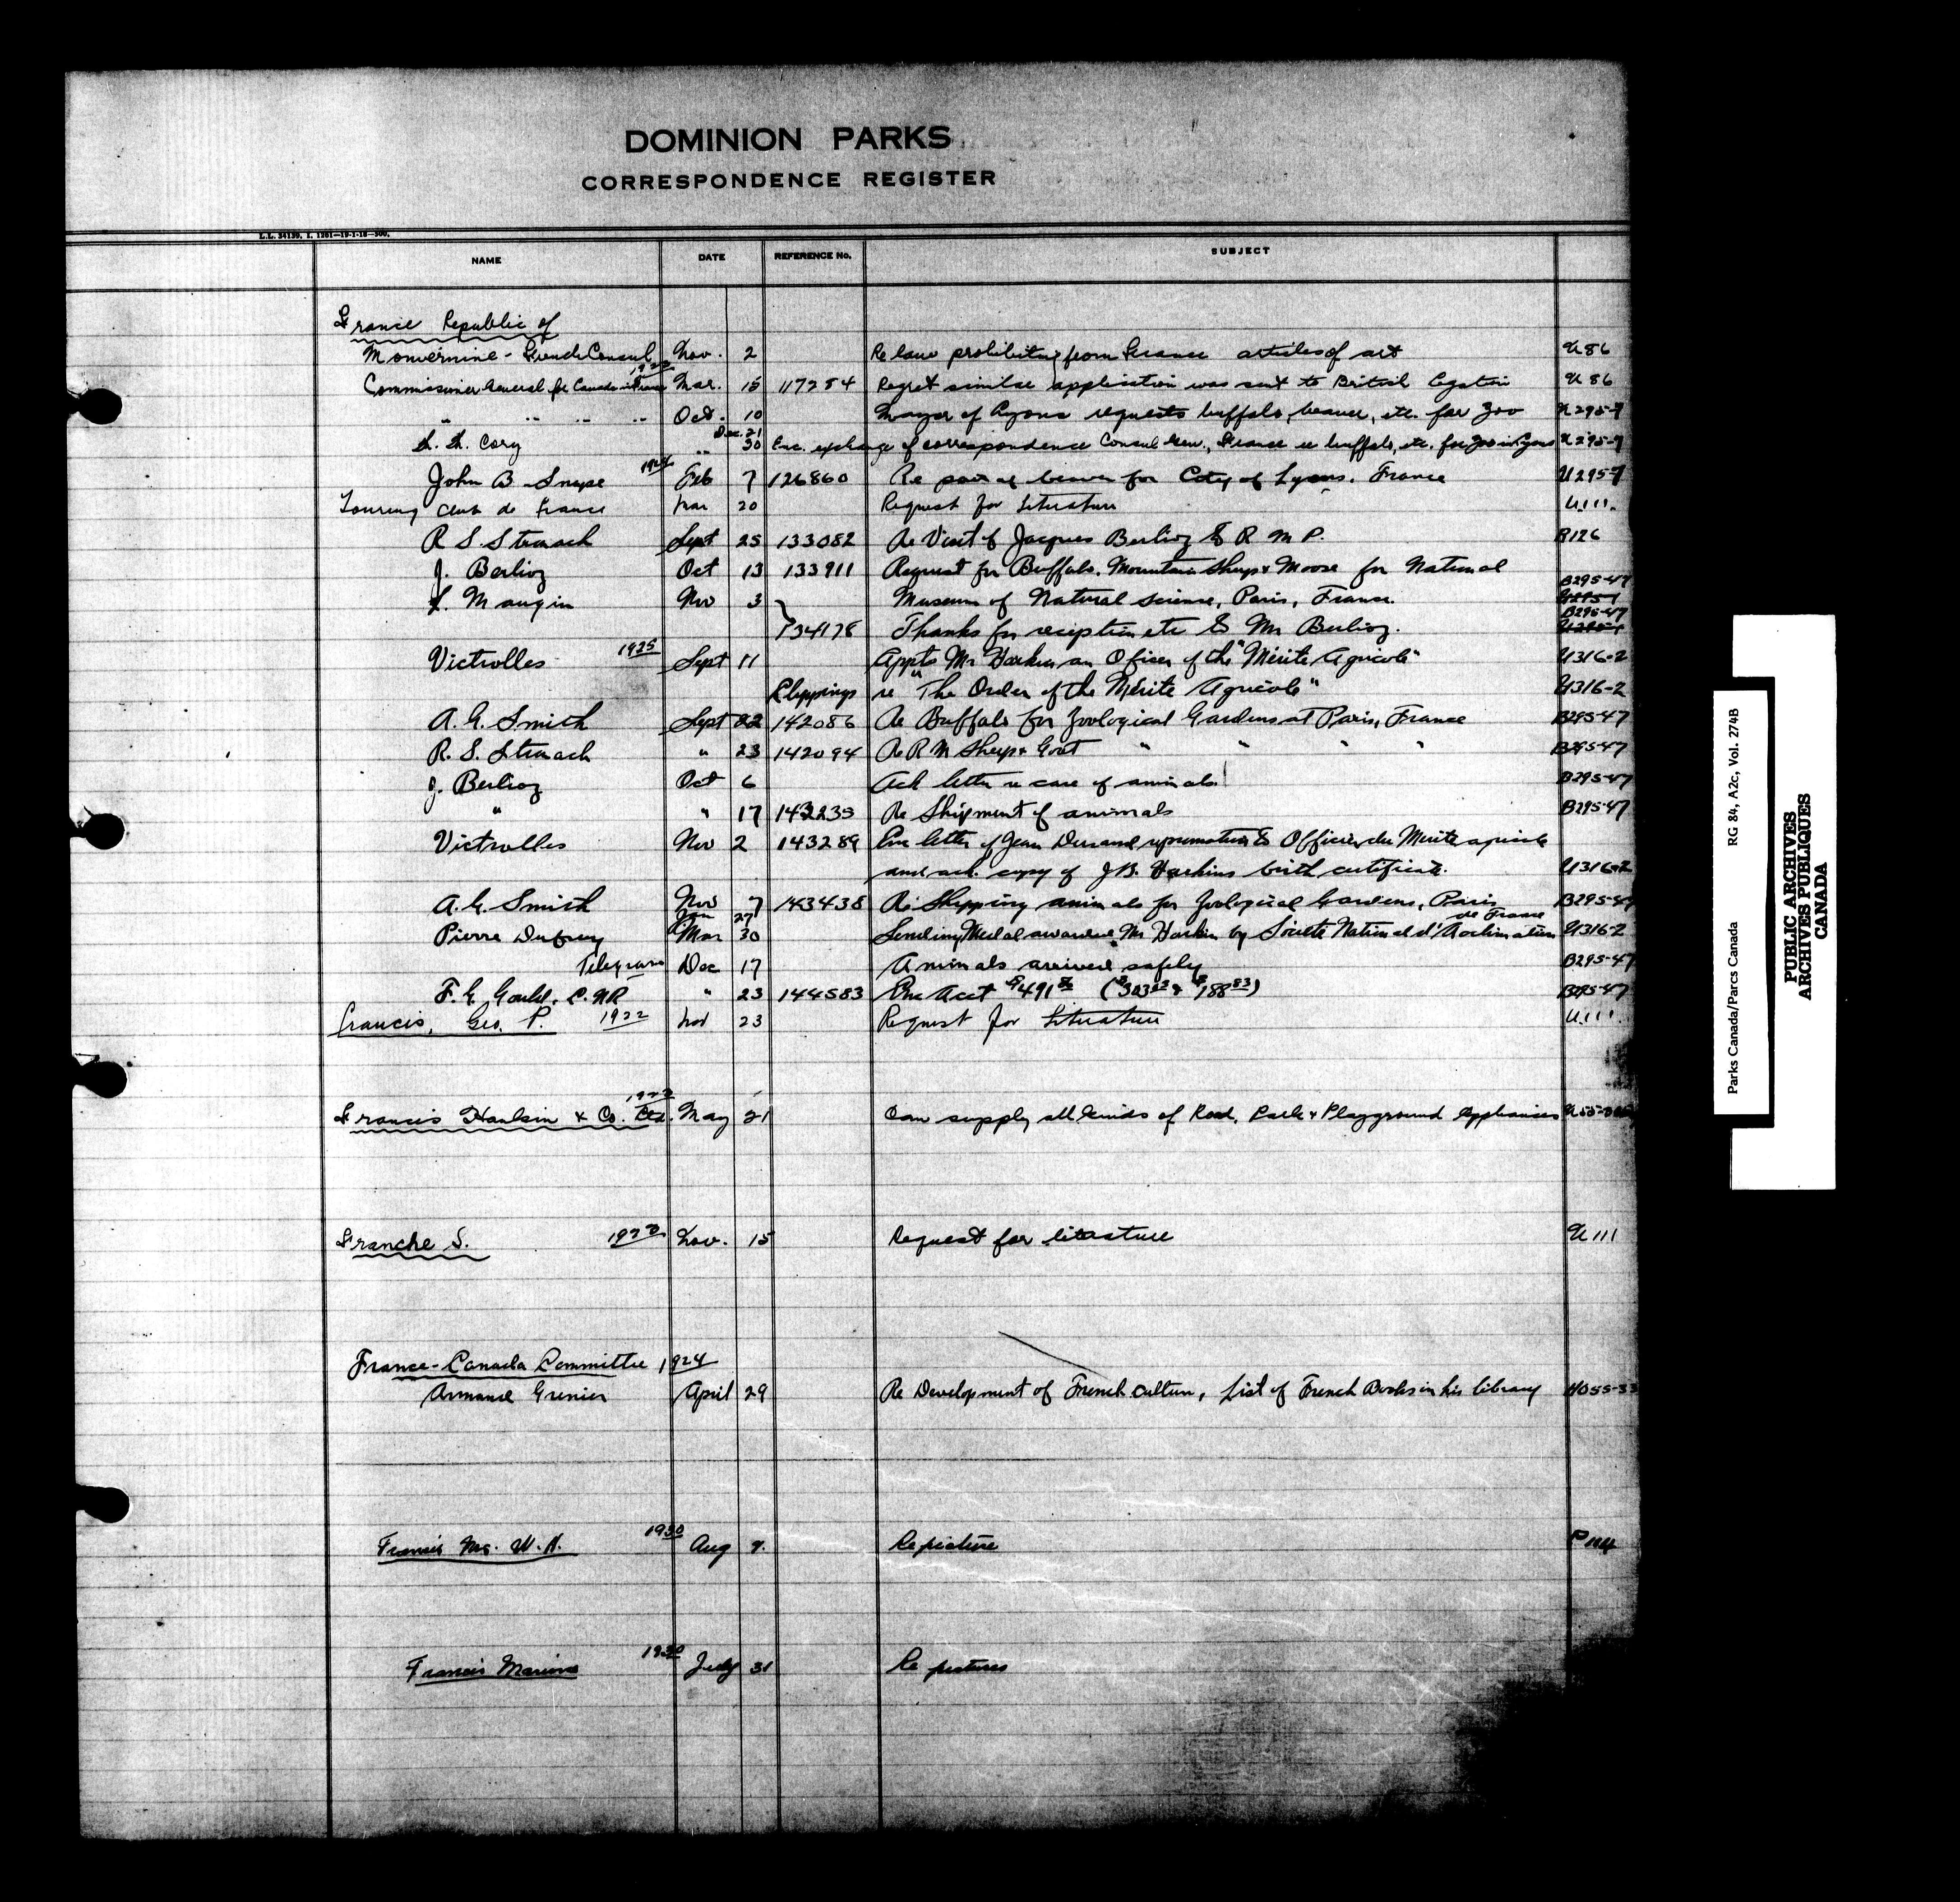 DOMINION PARKS
CORRESPONDENCE REGISTER
L.L. 34139. I. 1261—19-1-18—500.
NAME DATE REFERENCE No. SUBJECT
France Republic of
Monvernine - French Consul Nov. 2 Re law prohibiting from France articles of art U 86
Commissioner General for Canada in France 1923 Mar. 15 117254 Regret similar application was sent to British Legation U 86
" " " " Oct. 10 Mayor of Lyons requests buffalo, beaver, etc. for Zoo U 295-7
Dec. 21
Cory " 30 Enc. exchange of correspondence Consul Gen., France re buffalo, etc. for Zoo in Lyons U 295-7
John B Snape 1924 Feb 7 126860 Re pair of beaver for City of Lyons. France U295-7
Touring Club de France Mar 20 Request for Literature U.111.
R S Stronach Sept 25 133082 Re Visit of Jacques Berlioz to R M P. R126
J. Berlioz Oct 13 133911 Request for Buffalo. Mountain Sheep & Moose for National B295-47
L. Mangin Nov 3 Museum of Natural Science, Paris, France.
134178 Thanks for reception etc to Mr Berlioz. B295-47
Victrolles 1925 Sept 11 Appts Mr Harkin an Officer of the "Mérite Agricole" U316-2
Clippings re "The Order of the Mérite Agricole" U316-2
A. G. Smith Sept 22 142086 Re Buffalo for Zoological Gardens at Paris, France B295-47
R. S. Stronach " 23 142094 Re R M Sheep & Goat " " " " B295-47
J. Berlioz Oct 6 Ack letter re care of animals B295-47
" " 17 142235 Re Shipment of animals B295-47
Victrolles Nov 2 143289 Enc letter of Jean Durand re promotion to Officier du Merite agricole
and ack. copy of J.B. Harkins birth certificate. U316-2
A. G. Smith Nov 7 143438 Re Shipping animals for Zoological Gardens, Paris B295-47
Jan 27 de France
Pierre Dufrey Mar 30 Sending Medal awarded Mr Harkin by Société National d'Acclimatation U316-2
Telegram Dec 17 Animals arrived safely B295-47
F. G. Gould, C.N.R " 23 144583 Enc Acct $491 ($303 & $188 83) B295-47
Francis, Geo. P. 1922 Nov 23 Request for Literature U.111.
Francis Hankin & Co. Ltd. 1923 May 21 Can supply all kinds of Road, Park & Playground Appliances
Franche S. 1923 Nov. 15 Request for literature U 111
France-Canada Committee 1924
Armand Grenier April 29 Re Development of French culture, List of French Books in his library
Francis Mrs. W. A. 1930 Aug 7. Re picture P114
Francis Marion 1930 July 31 Re pictures
Parks Canada/Parcs Canada RG 84, A2c, Vol. 274B
PUBLIC ARCHIVES
ARCHIVES PUBLIQUES
CANADA